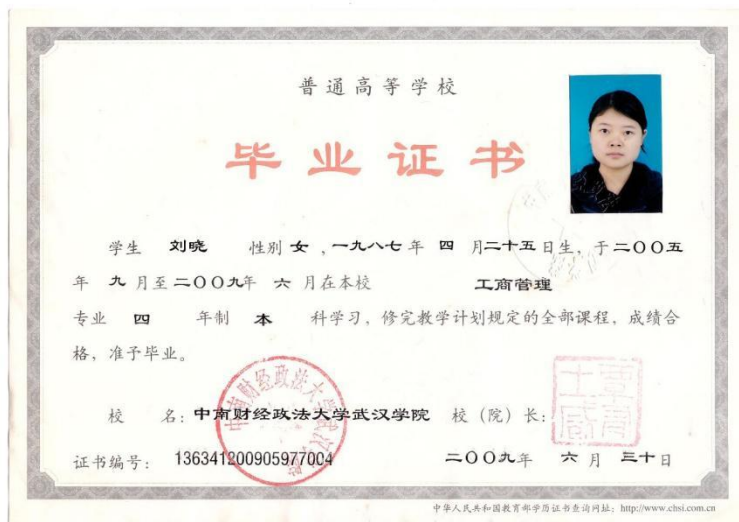 普通高等学校
毕业证书
学生 刘晓 性别 女 ，一九八七 年 四 月二十五 日生，于 二〇〇五
年 九 月至 二〇〇九年 六 月在本校 工商管理
专业 四 年制 本 科学习，修完教学计划规定的全部课程，成绩合
格，准予毕业。
校 名：中南财经政法大学武汉学院 校（院）长：
证书编号： 136341200905977004 二〇〇九年 六 月 三十日
中南财经政法大学武汉学院
中华人民共和国教育部学历证书查询网址：http://www.chsi.com.cn